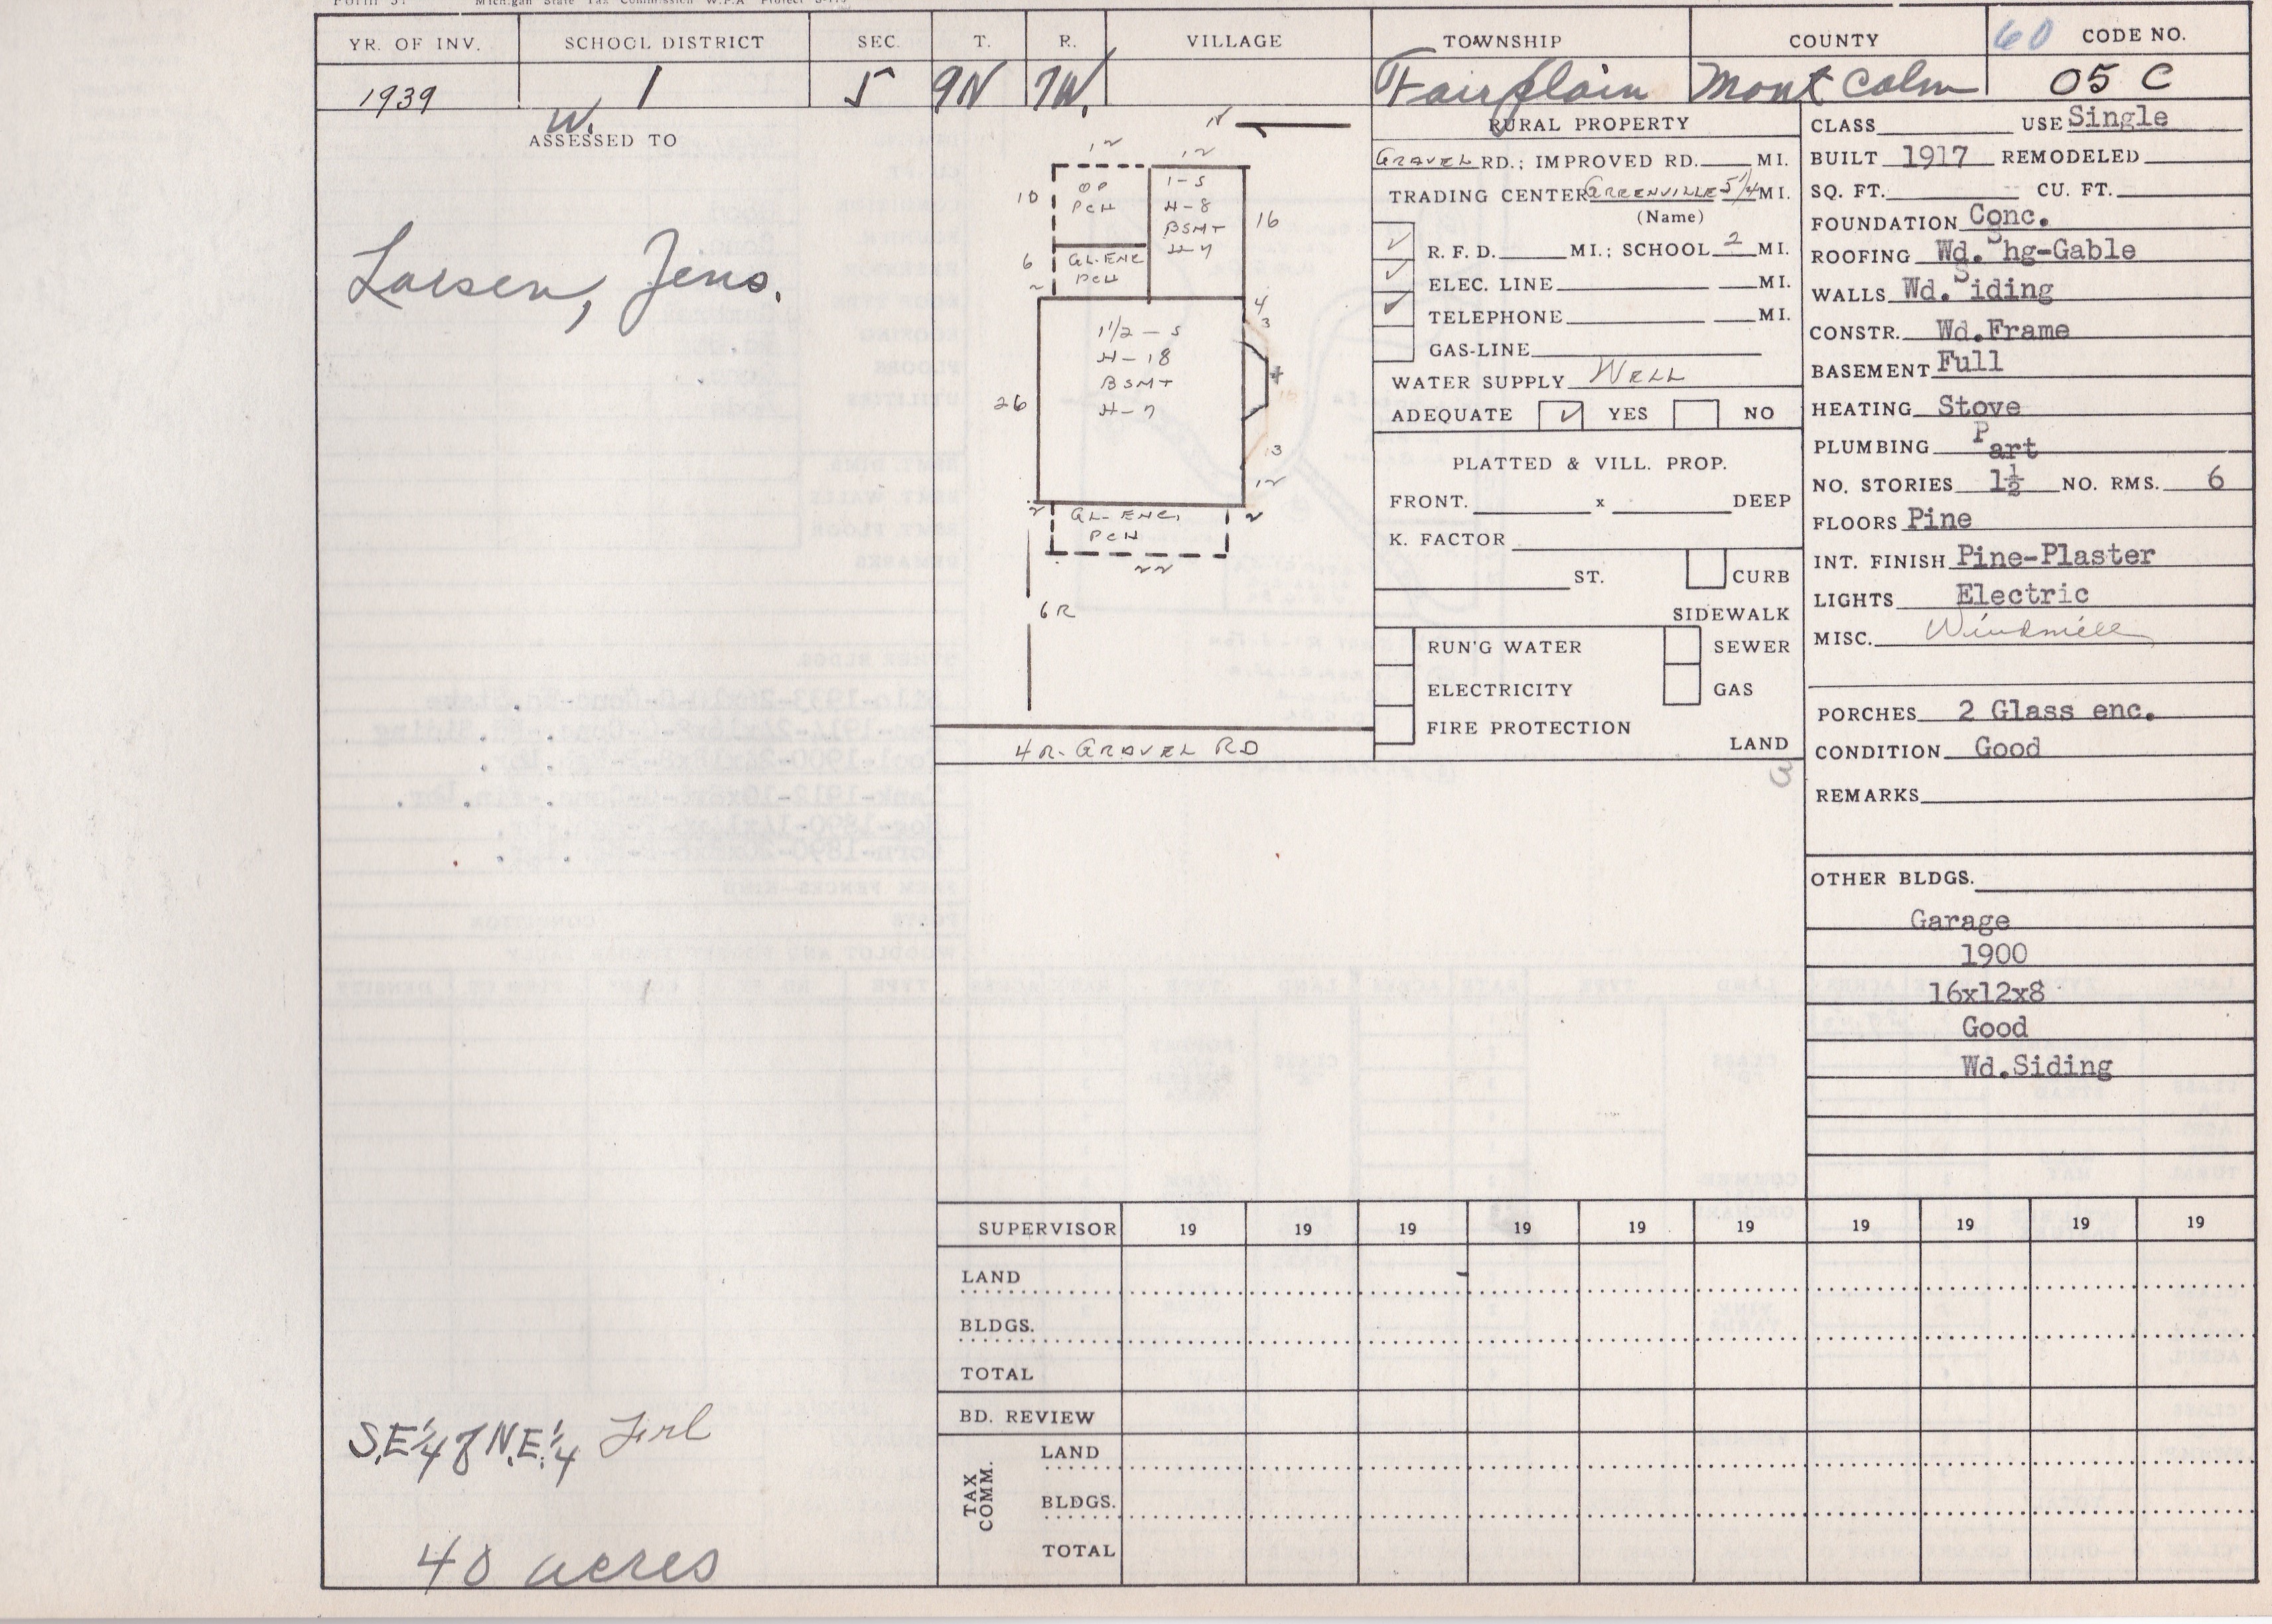 Michigan State Tax Commission W.P.A Project
YR. OF INV. SCHOOL DISTRICT SEC. T. R. VILLAGE TOWNSHIP COUNTY 60 CODE NO.
1939 1 5 9N 7W. Fairplain Montcalm 05 C
W.
ASSESSED TO
Larsen, Jens.
S.E 1/4 of N.E. 1/4 Frl
40 acres
N
12 12
10 OP PCH
1-S H-8 BSMT H-7
16
6 GL-ENC PCH
2
4
3
1 1/2 - S
H-18
BSMT
H-7
26
3
12
2 2
GL-ENC,
PCH
22
6R
4R. GRAVEL RD
RURAL PROPERTY
GRAVEL RD.; IMPROVED RD. MI.
TRADING CENTER GREENVILLE 5 1/4 MI.
(Name)
✓ R. F. D. MI.; SCHOOL 2 MI.
✓ ELEC. LINE MI.
✓ TELEPHONE MI.
GAS-LINE
WATER SUPPLY WELL
ADEQUATE ✓ YES NO
PLATTED & VILL. PROP.
FRONT. x DEEP
K. FACTOR
ST. CURB
SIDEWALK
RUN'G WATER SEWER
ELECTRICITY GAS
FIRE PROTECTION
LAND
3
CLASS USE Single
BUILT 1917 REMODELED
SQ. FT. CU. FT.
FOUNDATION Conc.
ROOFING Wd. Shg-Gable
WALLS Wd. Siding
CONSTR. Wd.Frame
BASEMENT Full
HEATING Stove
PLUMBING Part
NO. STORIES 1½ NO. RMS. 6
FLOORS Pine
INT. FINISH Pine-Plaster
LIGHTS Electric
MISC. Windmill
PORCHES 2 Glass enc.
CONDITION Good
REMARKS
OTHER BLDGS.
Garage
1900
16x12x8
Good
Wd.Siding
SUPERVISOR 19 19 19 19 19 19 19 19 19 19
LAND
BLDGS.
TOTAL
BD. REVIEW
TAX COMM.
LAND
BLDGS.
TOTAL